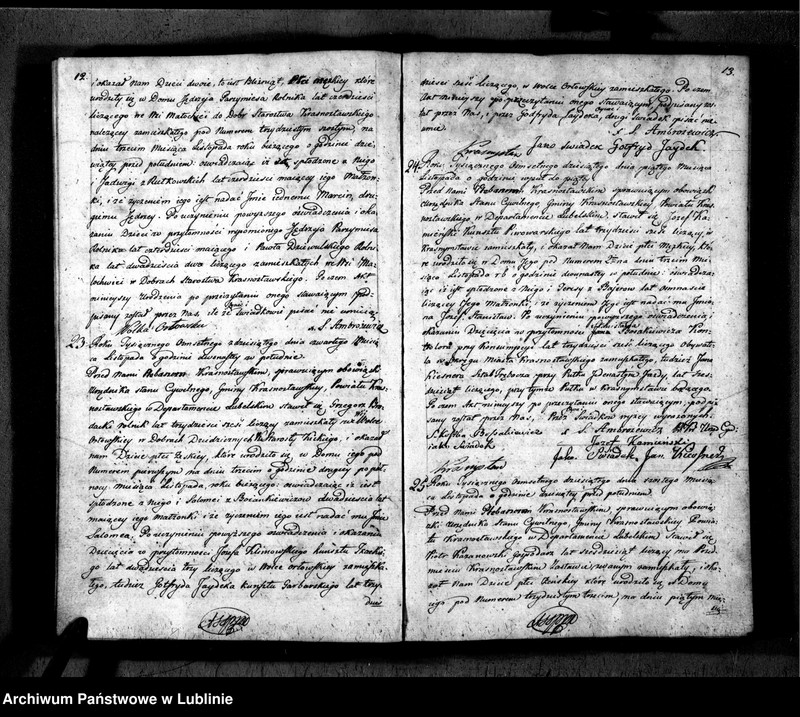 12.
i okazał nam Dzieci dwoie, to iest Bliźnięt, Płci męzkiey które
urodziły się w Domu Jędrzeja Parymiesa Rolnika lat czterdzieści
liczącego we Wsi Małochwiej do Dobr Starostwa Krasnostawskiego
należącey zamieszkałego pod Numerem trzydziestym szostym, na
dniu trzecim Miesiąca Listopada roku bieżącego o godzinie dzie-
wiątey przed południem oswiadczaiąc iż są spłodzone z niego
i Jadwigi z Rutkowskich lat czterdzieści maiącey iego Małżon-
ki, i że zyczeniem iego iest nadać Imie iednemu Marcin, dru-
giemu Jędrzey. Po uczynieniu powyższego oświadczenia i oka-
zaniu Dzieci w przytomności wspomnionego Jędrzeja Parymiesa
Rolnika lat czterdzieści maiącego i Pawła Rolni-
ka lat dwadzieścia dwa liczącego zamieszkałych we Wsi Ma-
łochwiei w Dobrach Starostwa Krasnostawskiego. Po czem Akt
ninieyszy Urodzenia po przeczytaniu onego stawaiącym pod-
pisany został przez Nas, ile że świadkowie pisać nie umieią
Wolka Orłowska
X. S. Ambrożewicz
23. Roku Tysiącznego Osmsetnego dziesiątego dnia czwartego Miesią-
ca Listopada o godzinie dwunastey w południe
Przed Nami Plebanem Krasnostawskim, sprawuiącym obowiązki
Urzędnika stanu Cywilnego, Gminy Krasnostawskiey, Powiatu Kra-
snostawskiego w Departamencie Lubelskim stawił się Grzegorz
rolnik lat trzydzieści sześć liczący zamieszkały we Wolce
Orłowskiey w Dobrach Dziedzicznych i okazał
nam Dziecie płci żeńskiey, które urodziło się w Domu iego pod
Numerem pierwszym na dniu trzecim o godzinie drugiey po poł-
nocy miesiąca Listopada, roku bieżącego, oswiadczaiąc iż iest
spłodzone z niego i Salomei z dwadzieścia lat
maiącey iego małżonki i że zyczeniem iego iest nadać mu Imie
Salomea. Po uczynieniu powyższego oswiadczenia i okazaniu
Dziecięcia w przytomności Józefa Klimowskiego kunsztu Tkackie-
go lat dwadzieścia trzy liczącego w Wolce orłowskiey zamieszka-
łego, tudzież Gotfryda Jaydeka kunsztu Garbarskiego lat trzy-
dzie
13.
dzieści sześć liczącego, w Wolce Orłowskiey zamieszkałego. Po czem
Akt ninieyszy po przeczytaniu onego stawaiącym podpisany zo-
stał przez Nas, i przez Gotfryda Jaydeka, drugi świadek pisać nie
umie.
X. S. Ambrożewicz
Krasnystaw Jako swiadek Gotfryd Jaydek
24. Roku Tysiącznego Osmsetnego dziesiątego dnia piątego Miesiąca
Listopada o godzinie wpoł do piątey.
Przed Nami Plebanem Krasnostawskim sprawuiącym obowiązki
Urzędnika Stanu Cywilnego, Gminy Krasnostawskiey Powiatu Kras-
nostawskiego w Departamencie Lubelskim, stawił się Jozef Ka-
mieński Kunsztu Piwowarskiego lat trzydzieści sześć liczący w
Krasnymstawie zamieszkały, i okazał Nam Dziecie płci Męzkiey, któ-
re urodziło się w Domu Jego pod Numerem na dniu trzecim Mie-
siąca Listopada r b o godzinie dwunastey w południe: oswiadcza-
iąc iż iest spłodzone z niego, i Teresy z lat ośmnaście
liczącey Jego Małżonki, i że życzeniem Jego iest nadać mu Imie
na Jozef Stanisław. Po uczynieniu powyższego oswiadczenia, i
okazaniu Dziecięcia w przytomności Kon-
trolera przy Konsumpcyi lat trzydzieści sześć liczącego Obywate-
la w Miasta Krasnostawskiego zamieszkałego, tudzież Jana
Kiesnera Sztab Trębacza przy Pułku Jazdy, lat sześ-
dziesiąt liczącego, przytymże Pułku w Krasnymstawie będącego.
Po czem Akt ninieyszy po przeczytaniu onego stawaiącym, podpi-
sany został przez Nas, i Przez Swiadkow wyżey wyrażonych:
X. S. Ambrożewicz Urzęd Cyw:
iako Swiadek Jozef Kamienski
Jako Swiadek, Jan Kiesner
Krasnystaw
25. Roku Tysiącznego Osmsetnego dziesiątego dnia szostego Miesią-
ca Listopada o godzinie dziesiątey przed południem.
Przed Nami Plebanem Krasnostawskim, sprawuiącym obowią-
zki Urzędnika Stanu Cywilnego, Gminy Krasnostawskiey Powia-
tu Krasnostawskiego w Departamencie Lubelskim Stawił się
Piotr Kazanowski Gospodarz lat siedziesiąt liczący na Przed-
mieściu Krasnostawskim Zastawie zwanym zamieszkały, i oka-
zał Nam Dziecie płci Żeńskiey które urodziło się w Domu
iego pod Numerem trzydziestym trzecim, na dniu piątym Mie-
Archiwum Państwowe w Lublinie